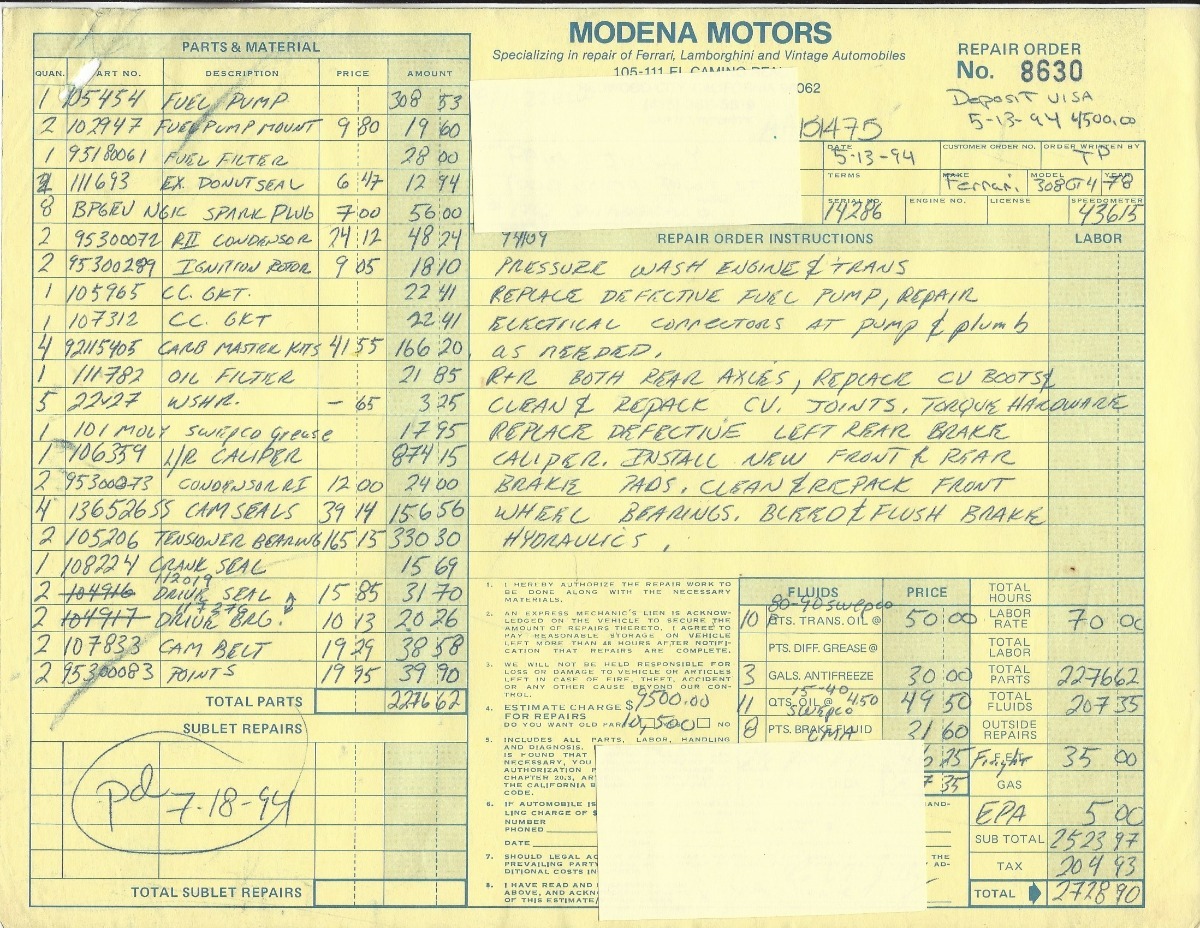 MODENA MOTORS
Specializing in repair of Ferrari, Lamborghini and Vintage Automobiles
105-111 EL CAMINO REAL
062
REPAIR ORDER
No. 8630
Deposit VISA
5-13-94 4500.00
DATE 5-13-94
CUSTOMER ORDER NO.
ORDER WRITTEN BY TP
TERMS
MAKE Ferrari
MODEL 308GT4
YEAR 78
SERIAL NO. 14286
ENGINE NO.
LICENSE
SPEEDOMETER 43615
PARTS & MATERIAL
QUAN. PART NO. DESCRIPTION PRICE AMOUNT
1 105454 FUEL PUMP 308 53
2 102947 FUEL PUMP MOUNT 9 80 19 60
1 95180061 FUEL FILTER 28 00
2 111693 EX. DONUT SEAL 6 47 12 94
8 BPGEV NGK SPARK PLUG 7 00 56 00
2 95300072 RII CONDENSOR 24 12 48 24
2 95300289 IGNITION ROTOR 9 05 18 10
1 105965 CC. GKT. 22 41
1 107312 CC. GKT 22 41
4 92115405 CARB MASTER KITS 41 55 166 20
1 111782 OIL FILTER 21 85
5 22427 WSHR. — 65 3 25
1 101 MOLY Swepco Grease 17 95
1 106359 L/R CALIPER 874 15
2 95300273 CONDENSOR RI 12 00 24 00
4 13652655 CAM SEALS 39 14 156 56
2 105206 TENSIONER BEARING 165 15 330 30
1 108224 CRANK SEAL 15 69
112019
2 104916 DRIVE SEAL 15 85 31 70
117276
2 104917 DRIVE BRG. 10 13 20 26
2 107833 CAM BELT 19 29 38 58
2 95300083 POINTS 19 95 39 90
TOTAL PARTS 2276 62
SUBLET REPAIRS
pd 7-18-94
TOTAL SUBLET REPAIRS
REPAIR ORDER INSTRUCTIONS LABOR
PRESSURE WASH ENGINE & TRANS
REPLACE DEFECTIVE FUEL PUMP, REPAIR
ELECTRICAL CONNECTORS AT PUMP & plumb
as NEEDED.
R+R BOTH REAR AXLES, REPLACE CV BOOTS &
CLEAN & REPACK CV. JOINTS. TORQUE HARDWARE
REPLACE DEFECTIVE LEFT REAR BRAKE
CALIPER. INSTALL NEW FRONT & REAR
BRAKE PADS. CLEAN & REPACK FRONT
WHEEL BEARINGS. BLEED & FLUSH BRAKE
HYDRAULICS.
1. I HEREBY AUTHORIZE THE REPAIR WORK TO
BE DONE ALONG WITH THE NECESSARY
MATERIALS.
2. AN EXPRESS MECHANIC'S LIEN IS ACKNOW-
LEDGED ON THE VEHICLE TO SECURE THE
AMOUNT OF REPAIRS THERETO. I AGREE TO
PAY REASONABLE STORAGE ON VEHICLE
LEFT MORE THAN 48 HOURS AFTER NOTIFI-
CATION THAT REPAIRS ARE COMPLETE.
3. WE WILL NOT BE HELD RESPONSIBLE FOR
LOSS OR DAMAGE TO VEHICLE OR ARTICLES
LEFT IN CASE OF FIRE, THEFT, ACCIDENT
OR ANY OTHER CAUSE BEYOND OUR CON-
TROL.
4. ESTIMATE CHARGE $ 9500.00
FOR REPAIRS 10,500
DO YOU WANT OLD PAR NO
5. INCLUDES ALL PARTS, LABOR, HANDLING
AND DIAGNOSIS.
IS FOUND THAT
NECESSARY, YOU
AUTHORIZATION
CHAPTER 20.3, AR
THE CALIFORNIA B
CODE.
6. IF AUTOMOBILE IS HAND-
LING CHARGE OF $
NUMBER
PHONED
DATE
7. SHOULD LEGAL AC THE
PREVAILING PARTY AD-
DITIONAL COSTS IN
8. I HAVE READ AND
ABOVE, AND ACKN
OF THIS ESTIMATE/
FLUIDS PRICE
80-90 Swepco
10 PTS. TRANS. OIL @ 50 00
PTS. DIFF. GREASE @
3 GALS. ANTIFREEZE 30 00
15-40
11 QTS. OIL @ 4.50 49 50
Swepco
8 PTS. BRAKE FLUID 21 60
LMA
25
7 35
TOTAL HOURS
LABOR RATE 70 00
TOTAL LABOR
TOTAL PARTS 2276 62
TOTAL FLUIDS 207 35
OUTSIDE REPAIRS
Freight 35 00
GAS
EPA 5 00
SUB TOTAL 2523 97
TAX 204 93
TOTAL 2728 90